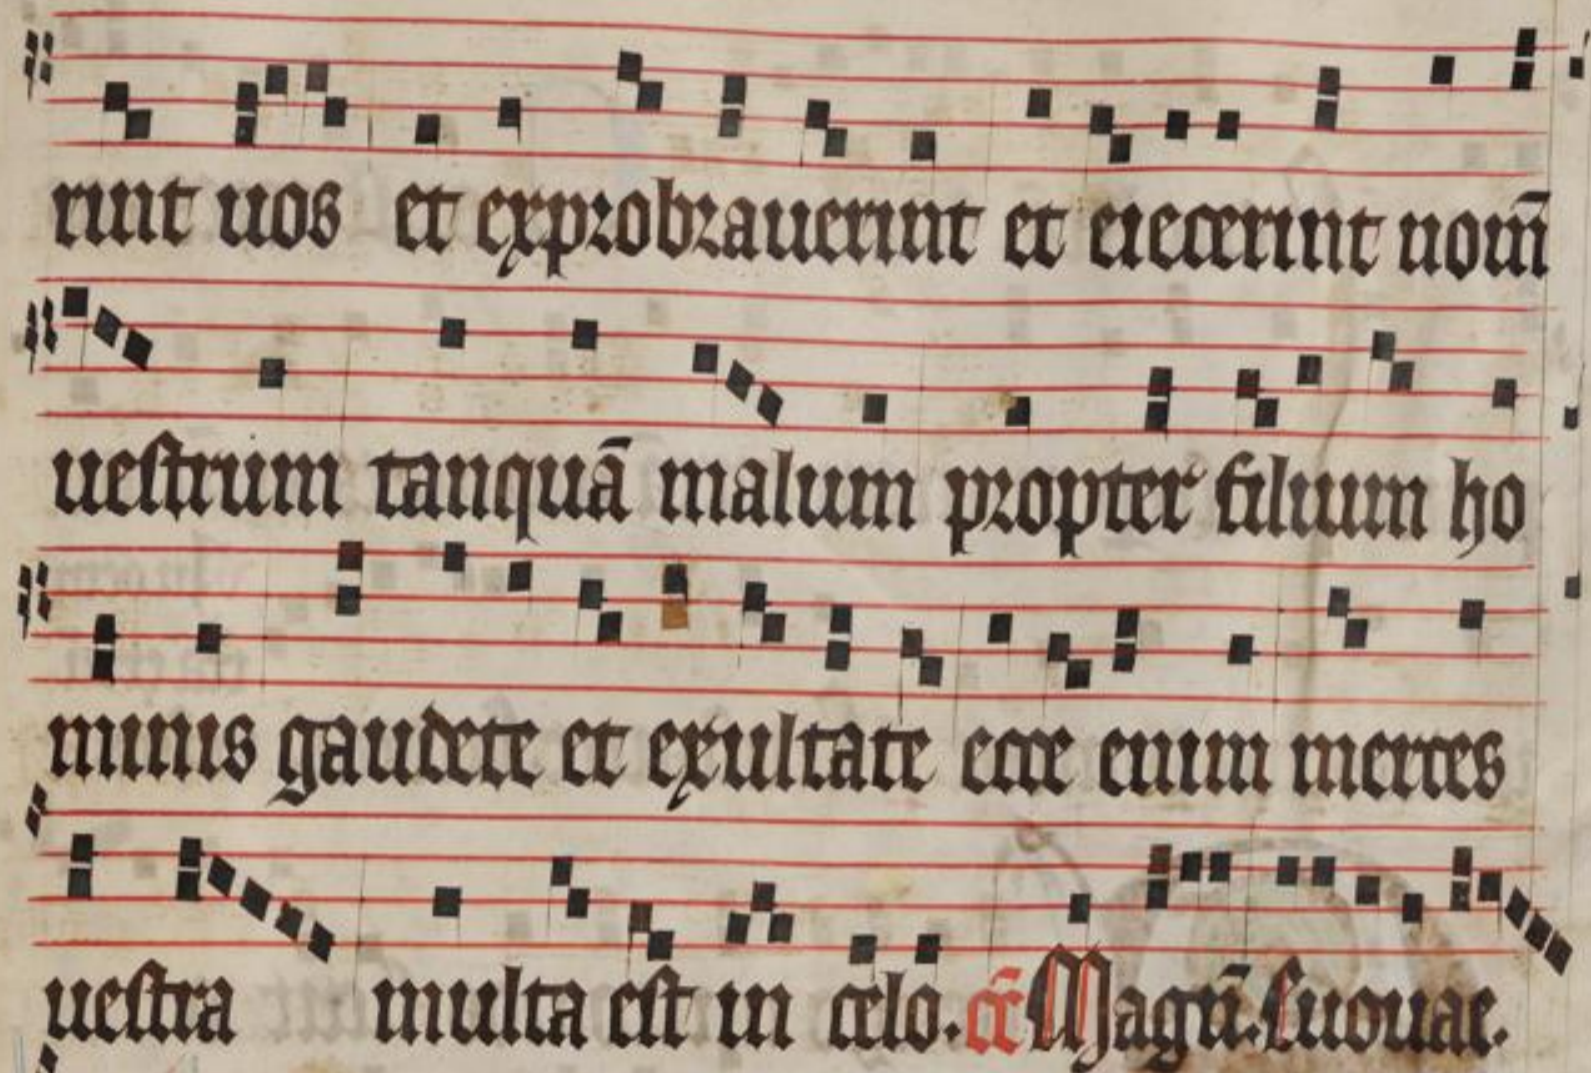 rint uos et exprobrauerint et eiecerint nom̄
uestrum tanquā malum propter filium ho
minis gaudete et exultate ecce enim merces
uestra multa est in celo. c̄r Magn̄. Euouae.